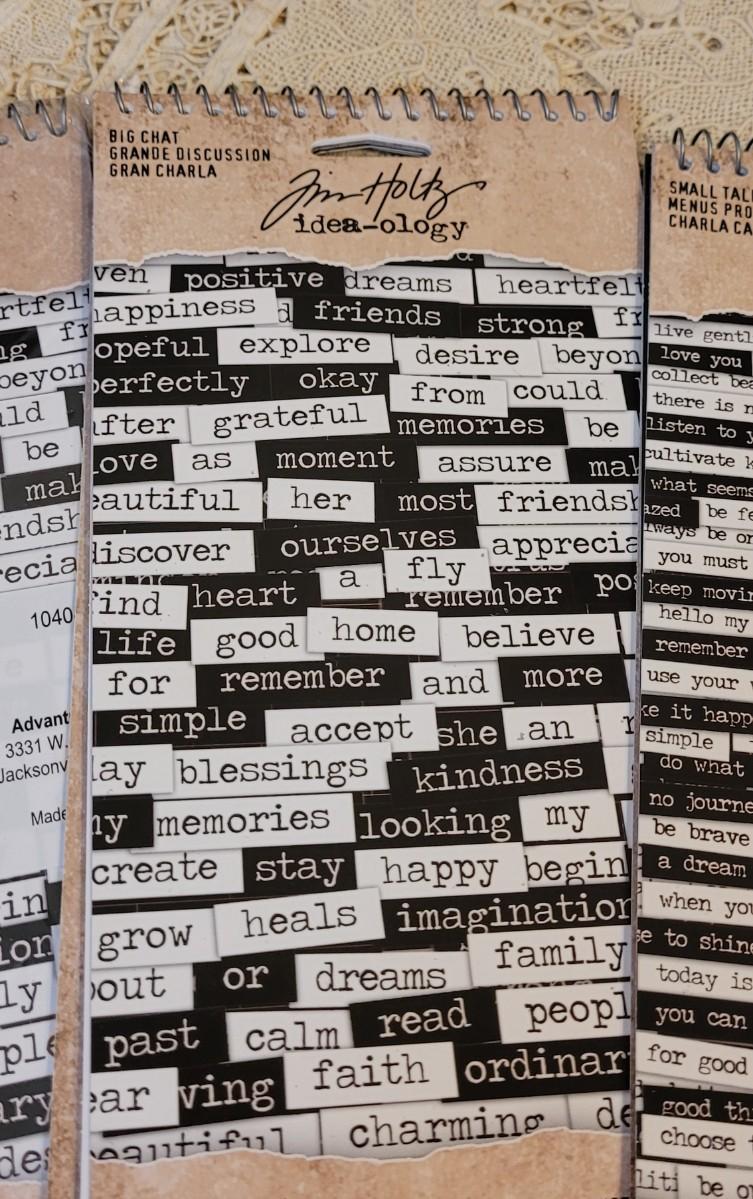 BIG CHAT
GRANDE DISCUSSION
GRAN CHARLA
Tim Holtz
idea-ology
ven positive dreams heartfelt
happiness d friends strong fr
opeful explore desire beyon
perfectly okay from could
after grateful memories be
love as moment assure mak
eautiful her most friendsh
discover ourselves apprecia
find heart a fly remember pos
life good home believe
for remember and more
simple accept she an
ay blessings kindness
my memories looking my
create stay happy begin
grow heals imagination
out or dreams family
past calm read peopl
ear ving faith ordinar
eautiful charming de
rtfelt
ng fr
beyon
ld
be
mak
endsh
recia
1040
Advant
3331 W.
Jacksonv
Made
in
ion
ly
ple
ary
des
SMALL TAL
MENUS PRO
CHARLA CA
live gentl
love you
collect bea
there is n
listen to y
cultivate k
what seems
azed be fe
always be or
you must
keep movin
hello my
remember
use your
ke it happ
simple
do what
no journe
be brave
a dream
when you
e to shine
today is
you can
for good
good th
choose
liti be o